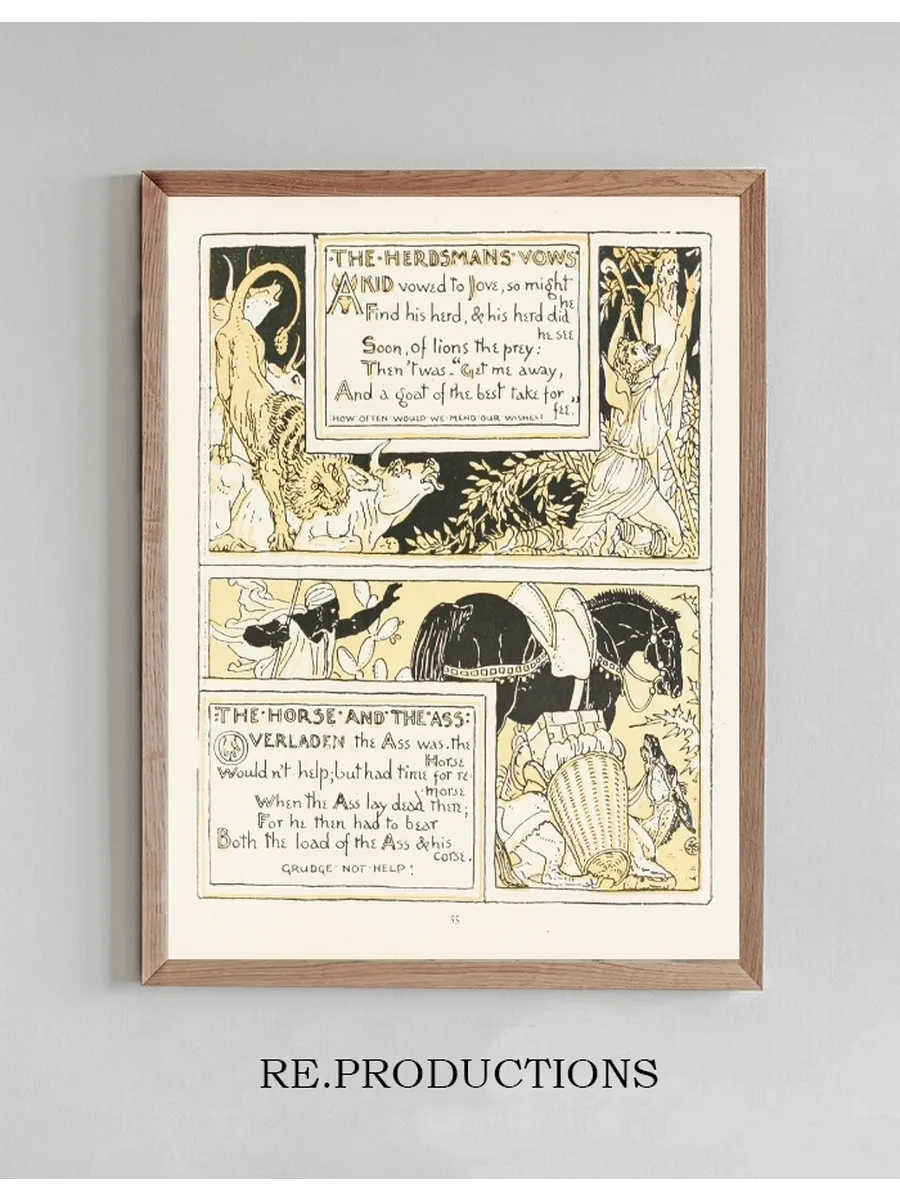 ·THE·HERDSMANS·VOWS
A KID vowed to Jove, so might
he
Find his herd, & his herd did
he see
Soon, of lions the prey:
Then 'twas - "Get me away,
And a goat of the best take for
fee."
·HOW·OFTEN·WOULD·WE·MEND·OUR·WISHES!
:THE·HORSE·AND·THE·ASS:
OVERLADEN the Ass was. the
Horse
Would n't help; but had time for re-
morse
When the Ass lay dead there;
For he then had to bear
Both the load of the Ass & his
corse.
GRUDGE·NOT·HELP!
55
RE.PRODUCTIONS